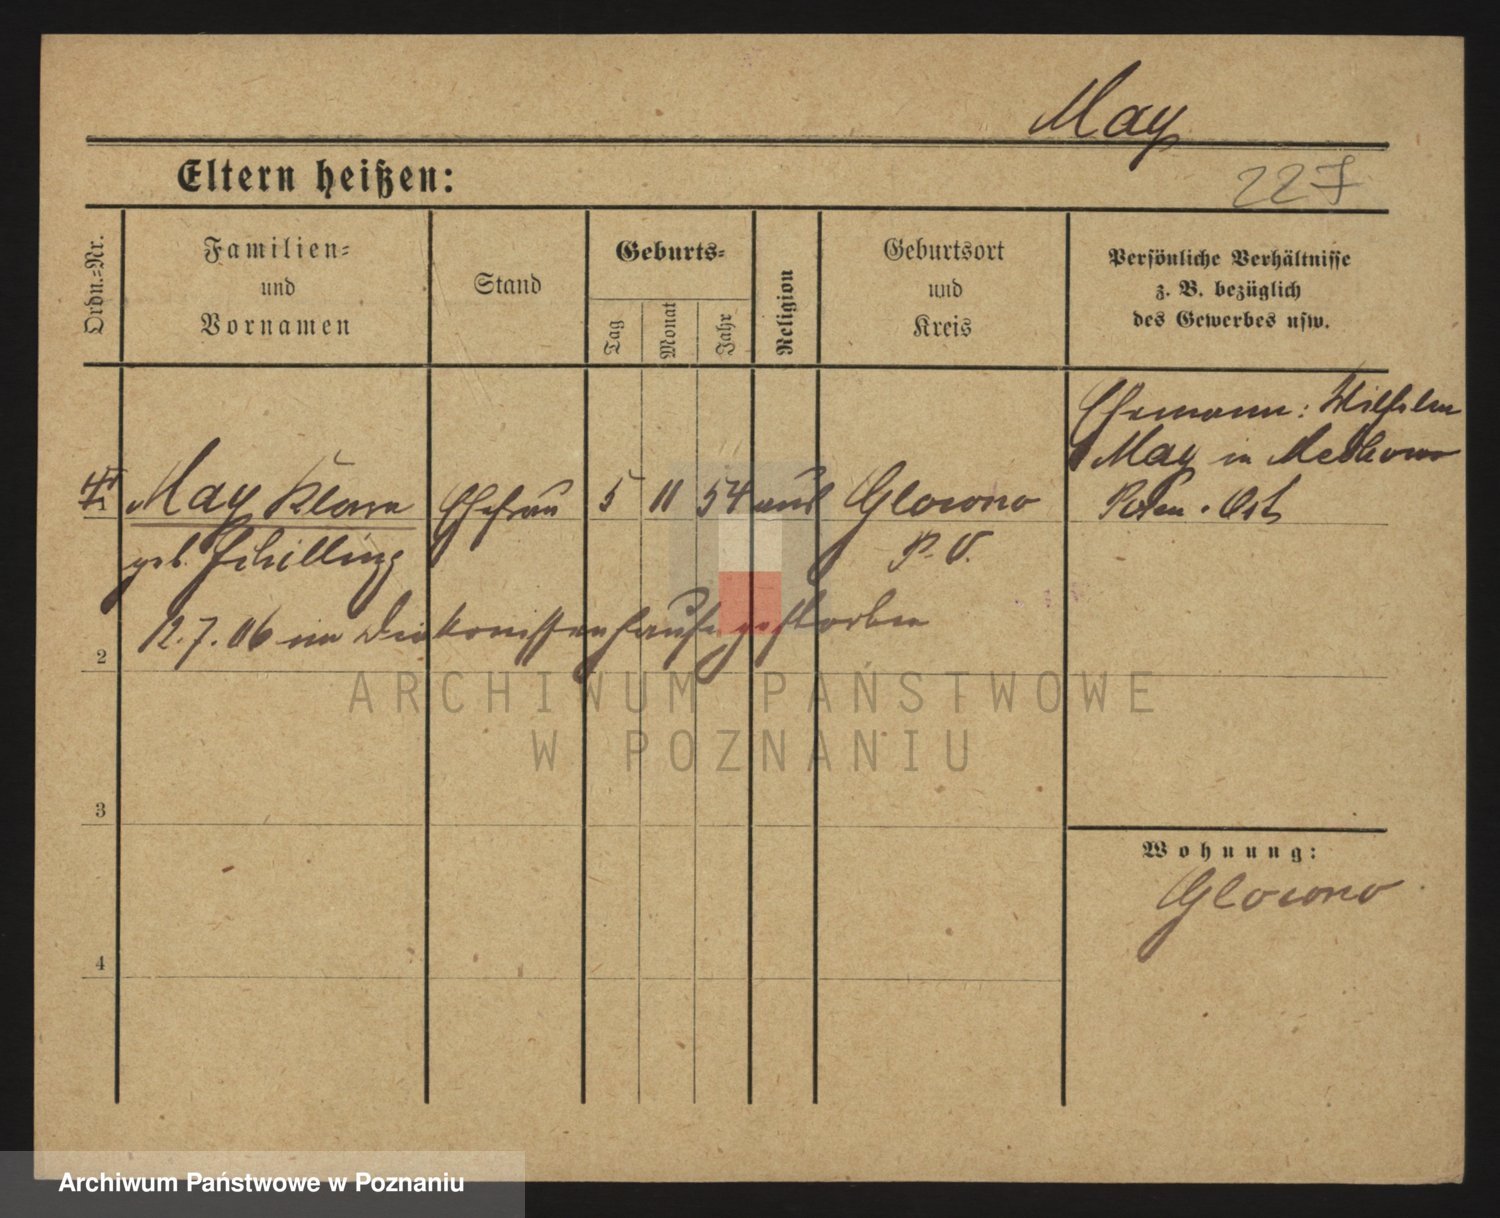 May
Eltern heißen:
227
Ordn.-Nr.
Familien-
und
Vornamen
Stand
Geburts-
Tag
Monat
Jahr
Religion
Geburtsort
und
Kreis
Persönliche Verhältnisse
z. B. bezüglich
des Gewerbes usw.
Ehemann: Wilhelm
May in
Posen. Ost
1
May Klara Ehefrau 5 11 54 Glowno
geb. Schilling P. O.
12.7.06 im Diakonissenhause gestorben
2
ARCHIWUM PAŃSTWOWE
W POZNANIU
3
Wohnung:
Glowno
4
Archiwum Państwowe w Poznaniu